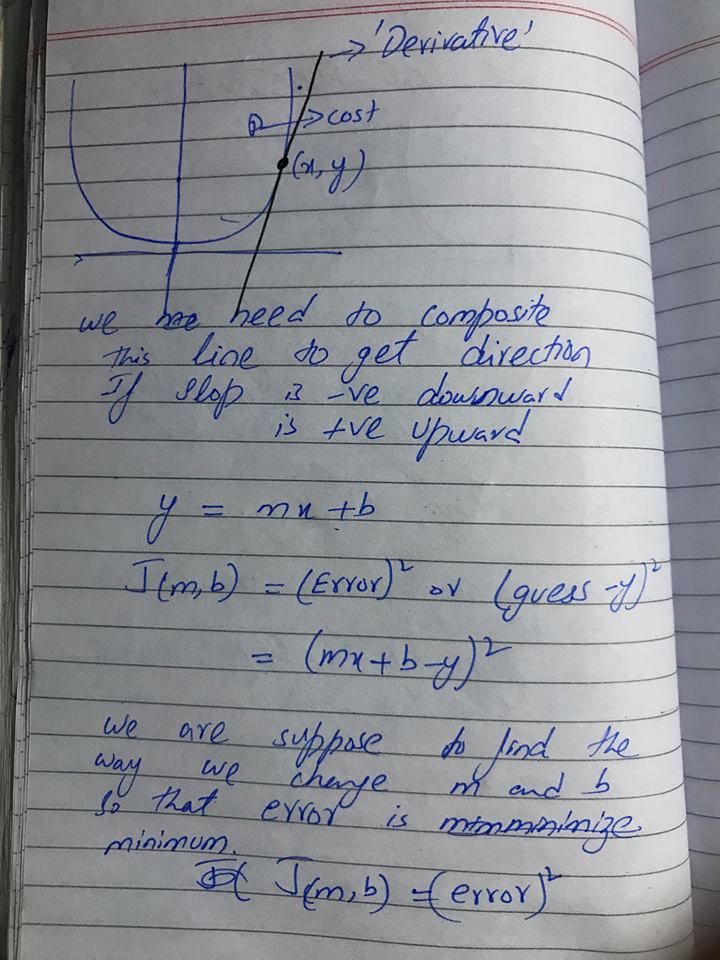 'Derivative'
cost
(x, y)
we need to composite
this line to get direction
If slop is -ve downward
is +ve upward
y = mx + b
J(m,b) = (Error)² or (guess -y)²
= (mx+b-y)²
we are suppose to find the
way we change m and b
so that error is mimminimize
minimum.
J(m,b) = (error)²